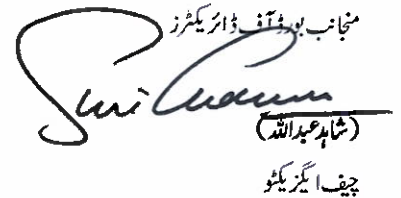 منجانب بورڈ آف ڈائریکٹرز
(شاہد عبداللہ)
چیف ایگزیکٹو